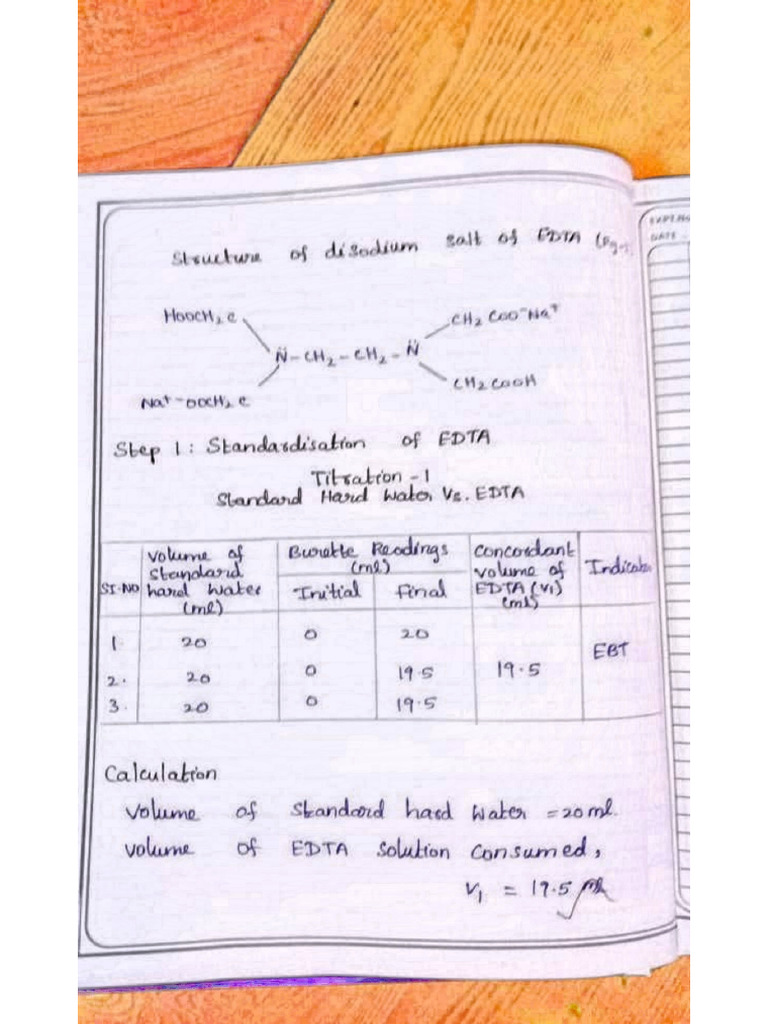 Structure of disodium salt of EDTA
HOOCH₂C
CH₂COO⁻Na⁺
N̈-CH₂-CH₂-N̈
CH₂COOH
Na⁺⁻OOCH₂C
Step 1: Standardisation of EDTA
Titration -1
Standard Hard Water Vs. EDTA
SI.NO
Volume of standard hard water (ml)
Burette Readings (ml)
Initial
Final
Concordant volume of EDTA (V₁) (ml)
Indicator
1. 20 0 20
2. 20 0 19.5 19.5 EBT
3. 20 0 19.5
Calculation
Volume of Standard hard Water = 20 ml.
Volume of EDTA Solution Consumed,
V₁ = 19.5 ml
DATE